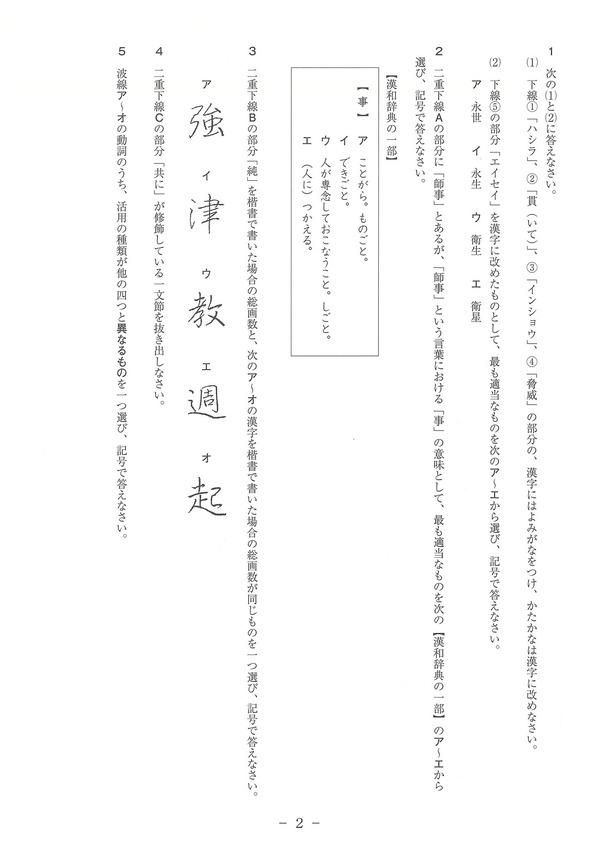 1 次の⑴と⑵に答えなさい。
⑴ 下線①「ハシラ」、②「貫（いて）」、③「インショウ」、④「脅威」の部分の、漢字にはよみがなをつけ、かたかなは漢字に改めなさい。
⑵ 下線⑤の部分「エイセイ」を漢字に改めたものとして、最も適当なものを次のア～エから選び、記号で答えなさい。
ア 永世 イ 永生 ウ 衛生 エ 衛星
2 二重下線Aの部分に「師事」とあるが、「師事」という言葉における「事」の意味として、最も適当なものを次の【漢和辞典の一部】のア～エから
選び、記号で答えなさい。
【漢和辞典の一部】
【事】 ア ことがら。ものごと。
イ できごと。
ウ 人が専念しておこなうこと。しごと。
エ （人に）つかえる。
3 二重下線Bの部分「純」を楷書で書いた場合の総画数と、次のア～オの漢字を楷書で書いた場合の総画数が同じものを一つ選び、記号で答えなさい。
ア 強 イ 津 ウ 教 エ 週 オ 起
4 二重下線Cの部分「共に」が修飾している一文節を抜き出しなさい。
5 波線ア～オの動詞のうち、活用の種類が他の四つと異なるものを一つ選び、記号で答えなさい。
－ 2 －